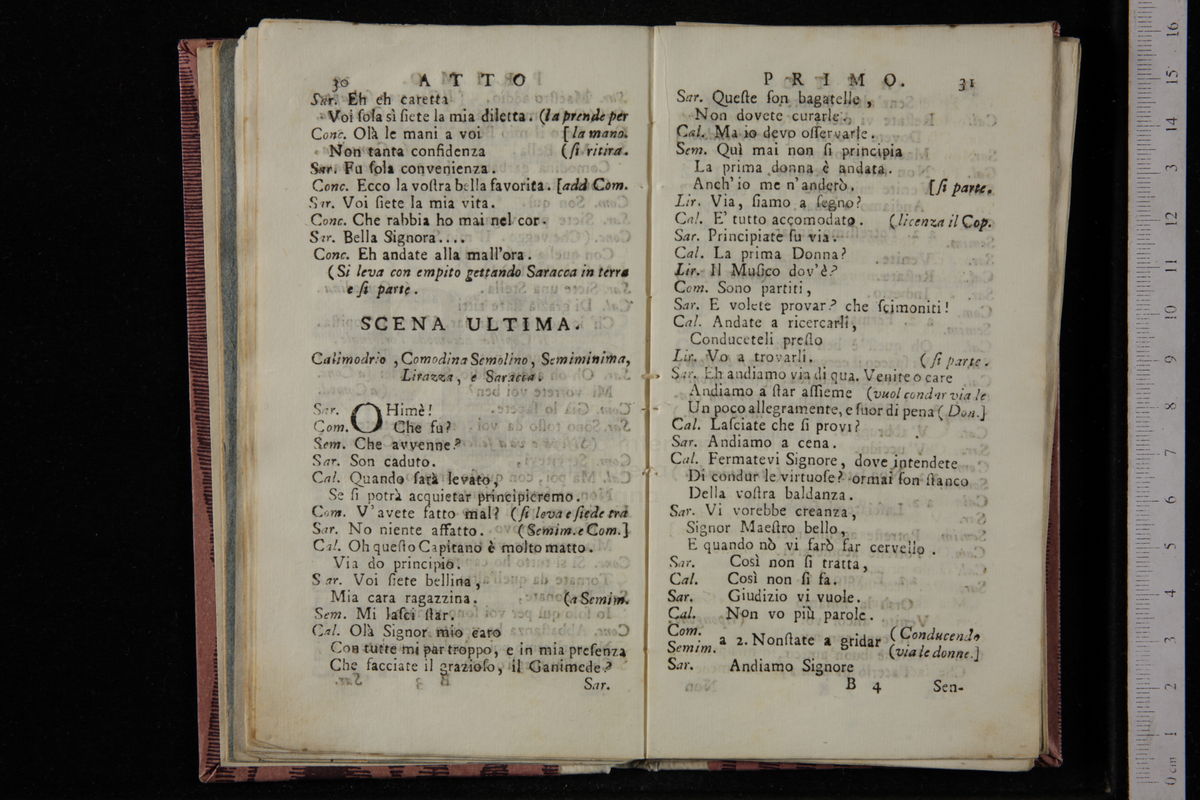 30 ATTO
Sar. Eh eh caretta
Voi ſola sì ſiete la mia diletta. (la prende per
Conc. Olà le mani a voi [la mano.
Non tanta confidenza (ſi ritira.
Sar. Fu ſola convenienza.
Conc. Ecco la voſtra bella favorita. [add Com.
Sar. Voi ſiete la mia vita.
Conc. Che rabbia ho mai nel cor.
Sar. Bella Signora....
Conc. Eh andate alla mall'ora.
(Si leva con empito gettando Saracca in terra
e ſi parte.
SCENA ULTIMA.
Calimodrio, Comodina Semolino, Semiminima,
Lirazza, e Saracca.
Sar. OHimè!
Com. Che fu?
Sem. Che avvenne?
Sar. Son caduto.
Cal. Quando ſarà levato,
Se ſi potrà acquietar principieremo.
Com. V'avete fatto mal? (ſi leva e ſiede tra
Sar. No niente affatto. (Semim. e Com.]
Cal. Oh queſto Capitano è molto matto.
Via do principio.
Sar. Voi ſiete bellina,
Mia cara ragazzina. (a Semim.
Sem. Mi laſci ſtar.
Cal. Olà Signor mio caro
Con tutte mi par troppo, e in mia preſenza
Che facciate il grazioſo, il Ganimede?
Sar.
PRIMO. 31
Sar. Queſte ſon bagatelle,
Non dovete curarle.
Cal. Ma io devo oſſervarle.
Sem. Quì mai non ſi principia
La prima donna è andata.
Anch'io me n'anderò. [ſi parte.
Lir. Via, ſiamo a ſegno?
Cal. E' tutto accomodato. (licenza il Cop.
Sar. Principiate ſu via.
Cal. La prima Donna?
Lir. Il Muſico dov'è?
Com. Sono partiti,
Sar. E volete provar? che ſcimoniti!
Cal. Andate a ricercarli,
Conduceteli preſto
Lir. Vo a trovarli. (ſi parte.
Sar. Eh andiamo via di qua. Venite o care
Andiamo a ſtar aſſieme (vuol condur via le
Un poco allegramente, e fuor di pena (Don.]
Cal. Laſciate che ſi provi?
Sar. Andiamo a cena.
Cal. Fermatevi Signore, dove intendete
Di condur le virtuoſe? ormai ſon ſtanco
Della voſtra baldanza.
Sar. Vi vorebbe creanza,
Signor Maeſtro bello,
E quando nò vi farò far cervello.
Sar. Così non ſi tratta,
Cal. Così non ſi fa.
Sar. Giudizio vi vuole.
Cal. Non vo più parole.
Com. (Conducendo
Semim. a 2. Nonſtate a gridar (via le donne.]
Sar. Andiamo Signore
B 4 Sen-
16
15
14
13
12
11
10
9
8
7
6
5
4
3
2
1
0 cm